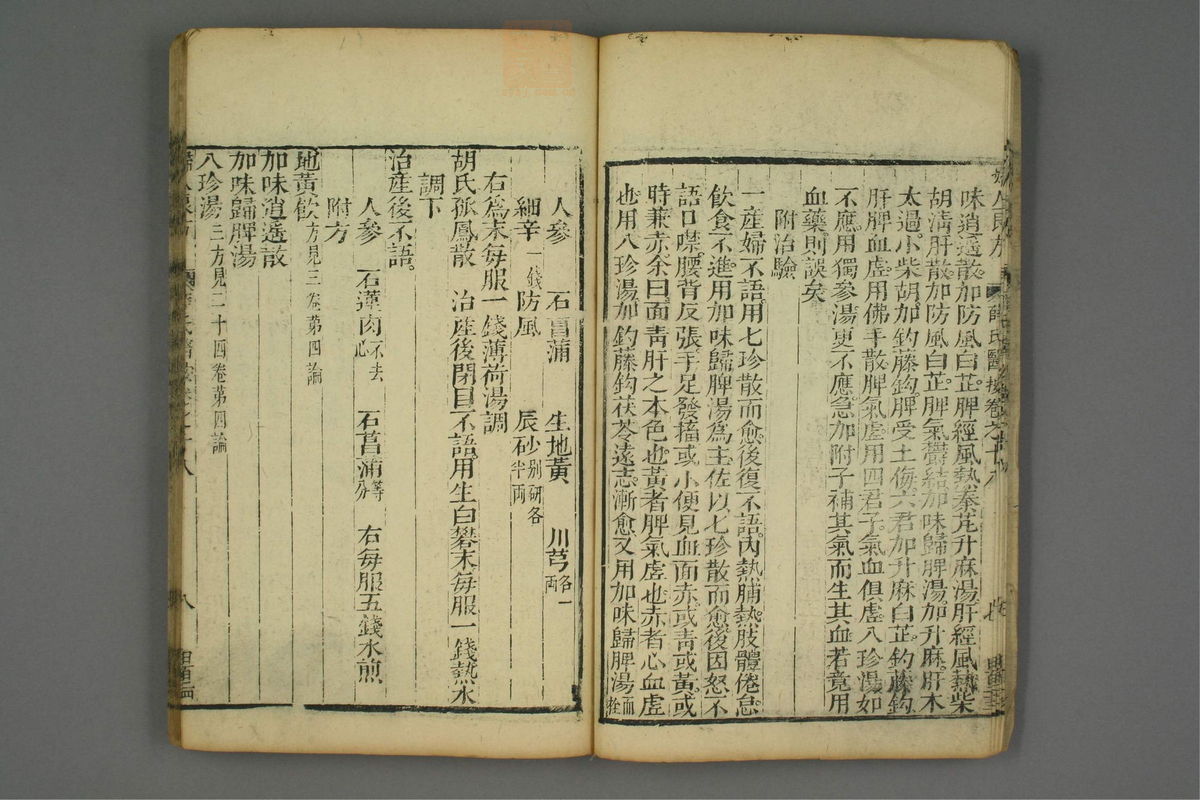 婦人良方 薛氏醫按卷之十八
味逍遙散加防風白芷脾經風熱秦芃升麻湯肝經風熱柴
胡清肝散加防風白芷脾氣鬱結加味歸脾湯加升麻肝木
太過小柴胡加鈎藤鈎脾受土侮六君加升麻白芷鈎藤鈎
肝脾血虛用佛手散脾氣虛用四君子氣血俱虛八珍湯如
不應用獨參湯更不應急加附子補其氣而生其血若竟用
血藥則誤矣
附治驗
一產婦不語用七珍散而愈後復不語內熱脯熱肢體倦怠
飲食不進用加味歸脾湯為主佐以七珍散而愈後因怒不
語口噤腰背反張手足發搐或小便見血面赤或青或黃或
時兼赤余曰面青肝之本色也黃者脾氣虛也赤者心血虛
也用八珍湯加鈎藤鈎茯苓遠志漸愈又用加味歸脾湯而痊
人參 石菖蒲 生地黃 川芎各一兩
細辛一錢 防風 辰砂別研各半兩
右為末每服一錢薄荷湯調
胡氏孤鳳散 治產後閉目不語用生白礬末每服一錢熱水
調下
治產後不語
人參 石蓮肉不去心 石菖蒲等分 右每服五錢水煎
附方
地黃飲方見三卷第四論
加味逍遙散
加味歸脾湯
八珍湯三方見二十四卷第四論
婦人良方 八